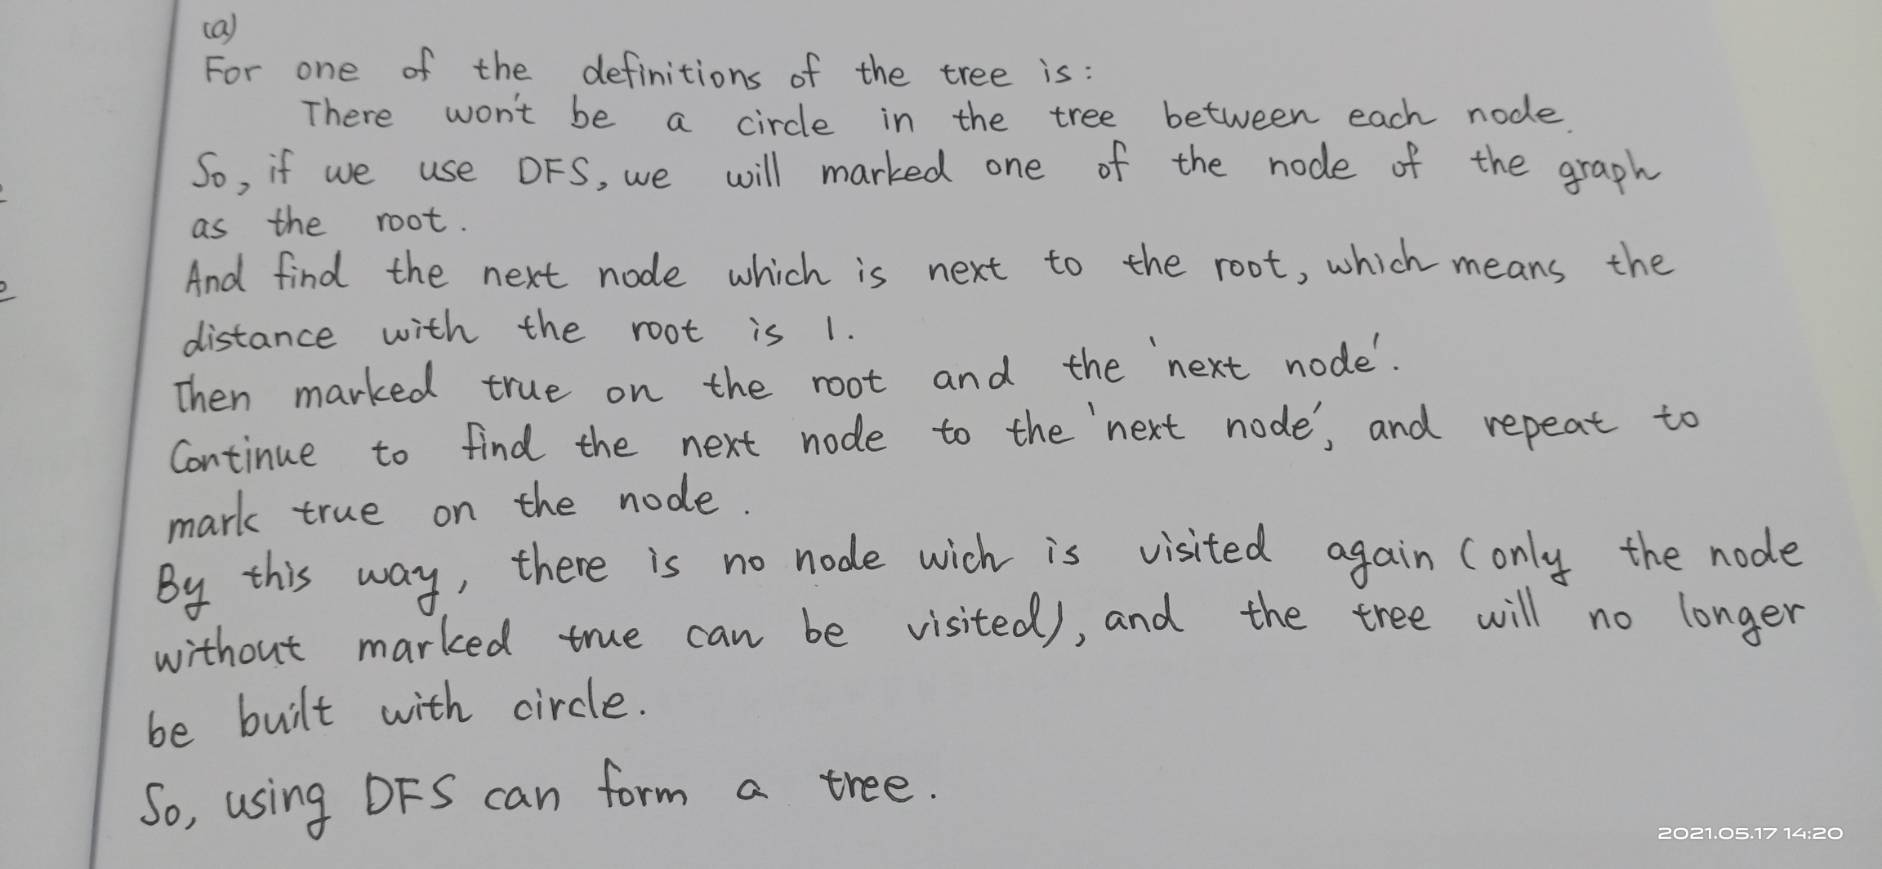 (a)
For one of the definitions of the tree is:
There won't be a circle in the tree between each node.
So, if we use DFS, we will marked one of the node of the graph
as the root.
And find the next node which is next to the root, which means the
distance with the root is 1.
Then marked true on the root and the 'next node'.
Continue to find the next node to the 'next node', and repeat to
mark true on the node.
By this way, there is no node wich is visited again (only the node
without marked true can be visited), and the tree will no longer
be built with circle.
So, using DFS can form a tree.
2021.05.17 14:20